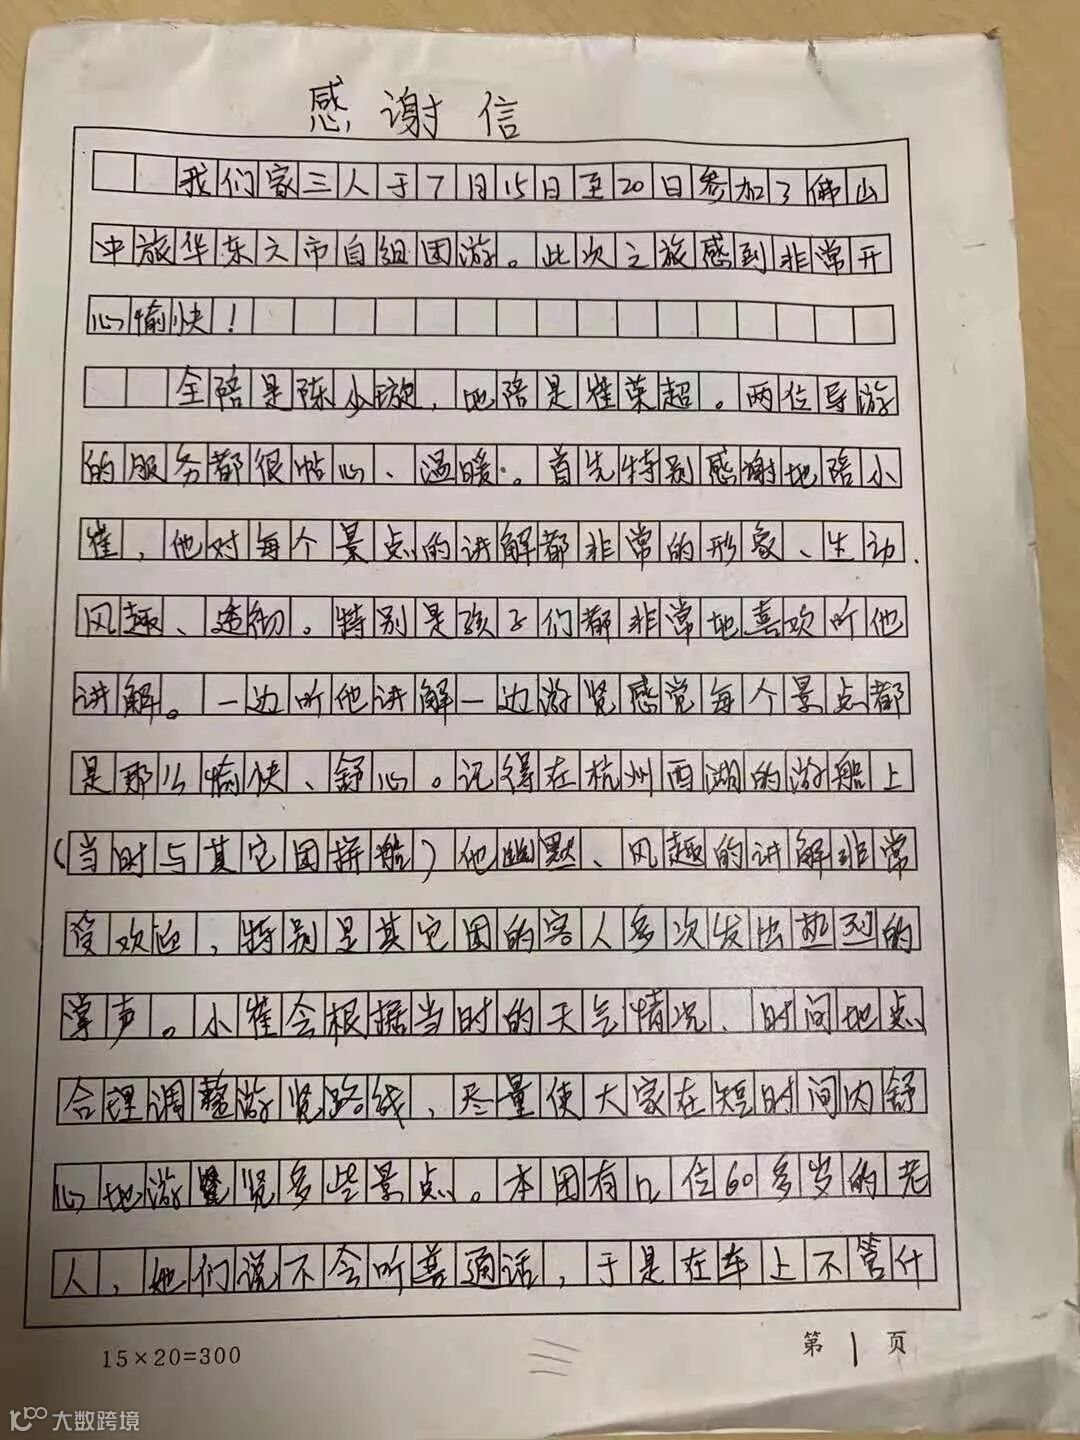 感谢信
我们家三人于7月15日至20日参加了佛山
中旅华东六市自组团游。此次之旅感到非常开
心愉快！
全陪是陈少璇，地陪是崔荣超。两位导游
的服务都很帖心、温暖。首先特别感谢地陪小
崔，他对每个景点的讲解都非常的形象、生动、
风趣、透彻。特别是孩子们都非常地喜欢听他
讲解。一边听他讲解一边游览感觉每个景点都
是那么愉快、舒心。记得在杭州西湖的游船上
（当时与其它团拼船）他幽默、风趣的讲解非常
受欢迎，特别是其它团的客人多次发出热烈的
掌声。小崔会根据当时的天气情况、时间地点
合理调整游览路线，尽量使大家在短时间内舒
心地游览多些景点。本团有几位60多岁的老
人，她们说不会听普通话，于是在车上不管什
15×20=300
第1页
大数跨境